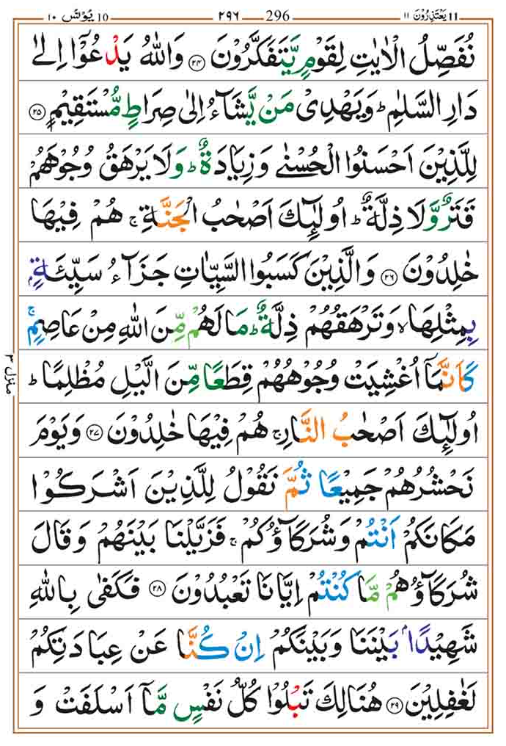 یَعْتَذِرُوْنَ ١١ 296 ٢٩٦ یُوْنُس ١٠
نُفَصِّلُ الْاٰیٰتِ لِقَوْمٍ یَّتَفَكَّرُوْنَ ﴿۲۴﴾ وَاللّٰهُ یَدْعُوْۤا اِلٰی
دَارِ السَّلٰمِ ؕ وَیَهْدِیْ مَنْ یَّشَآءُ اِلٰی صِرَاطٍ مُّسْتَقِیْمٍ ﴿۲۵﴾
لِلَّذِیْنَ اَحْسَنُوا الْحُسْنٰی وَزِیَادَةٌ ؕ وَلَا یَرْهَقُ وُجُوْهَهُمْ
قَتَرٌ وَّلَا ذِلَّةٌ ؕ اُولٰٓئِكَ اَصْحٰبُ الْجَنَّةِ ۚ هُمْ فِیْهَا
خٰلِدُوْنَ ﴿۲۶﴾ وَالَّذِیْنَ كَسَبُوا السَّیِّاٰتِ جَزَآءُ سَیِّئَةٍۭ
بِمِثْلِهَا ۙ وَتَرْهَقُهُمْ ذِلَّةٌ ؕ مَا لَهُمْ مِّنَ اللّٰهِ مِنْ عَاصِمٍ ۚ
كَاَنَّمَاۤ اُغْشِیَتْ وُجُوْهُهُمْ قِطَعًا مِّنَ الَّیْلِ مُظْلِمًا ؕ
اُولٰٓئِكَ اَصْحٰبُ النَّارِ ۚ هُمْ فِیْهَا خٰلِدُوْنَ ﴿۲۷﴾ وَیَوْمَ
نَحْشُرُهُمْ جَمِیْعًا ثُمَّ نَقُوْلُ لِلَّذِیْنَ اَشْرَكُوْا
مَكَانَكُمْ اَنْتُمْ وَشُرَكَآؤُكُمْ ۚ فَزَیَّلْنَا بَیْنَهُمْ وَقَالَ
شُرَكَآؤُهُمْ مَّا كُنْتُمْ اِیَّانَا تَعْبُدُوْنَ ﴿۲۸﴾ فَكَفٰی بِاللّٰهِ
شَهِیْدًۢا بَیْنَنَا وَبَیْنَكُمْ اِنْ كُنَّا عَنْ عِبَادَتِكُمْ
لَغٰفِلِیْنَ ﴿۲۹﴾ هُنَالِكَ تَبْلُوْا كُلُّ نَفْسٍ مَّاۤ اَسْلَفَتْ وَ
منزل ٣